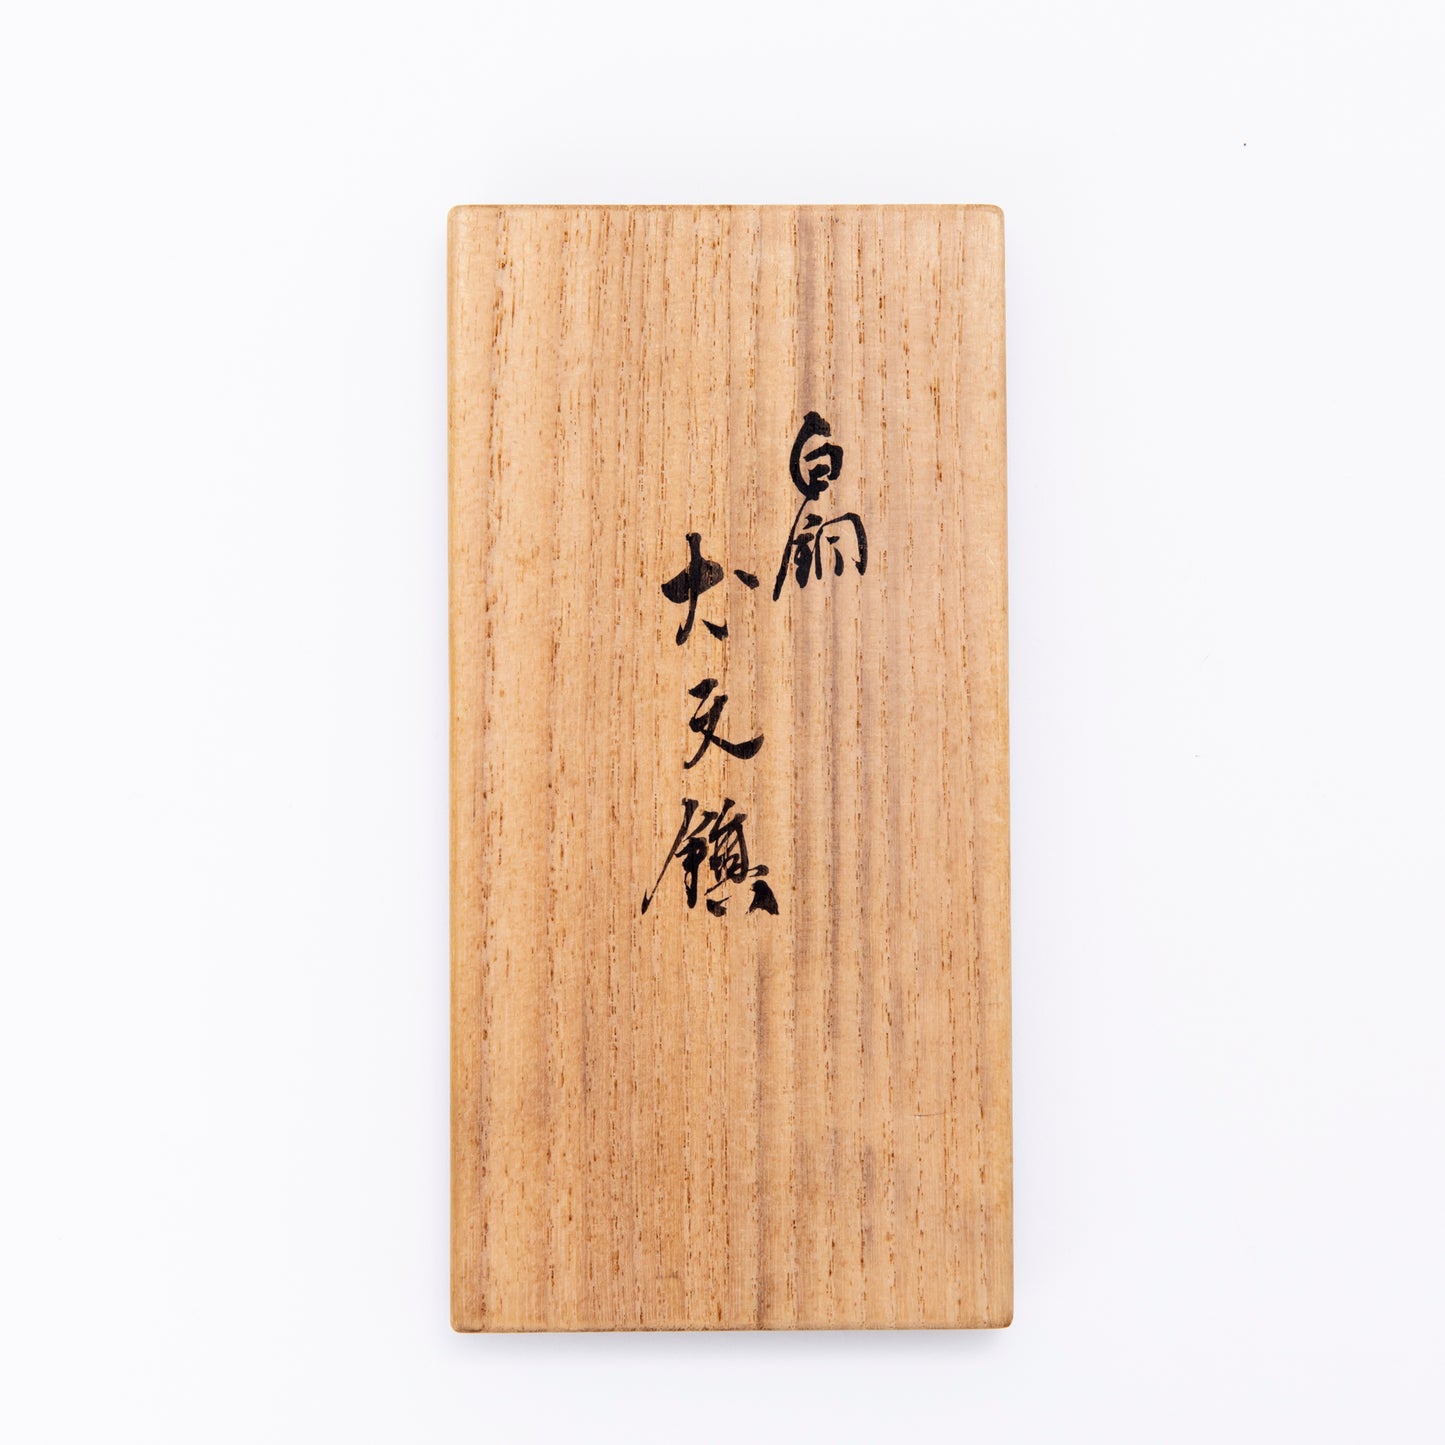 白銅
犬文鎮